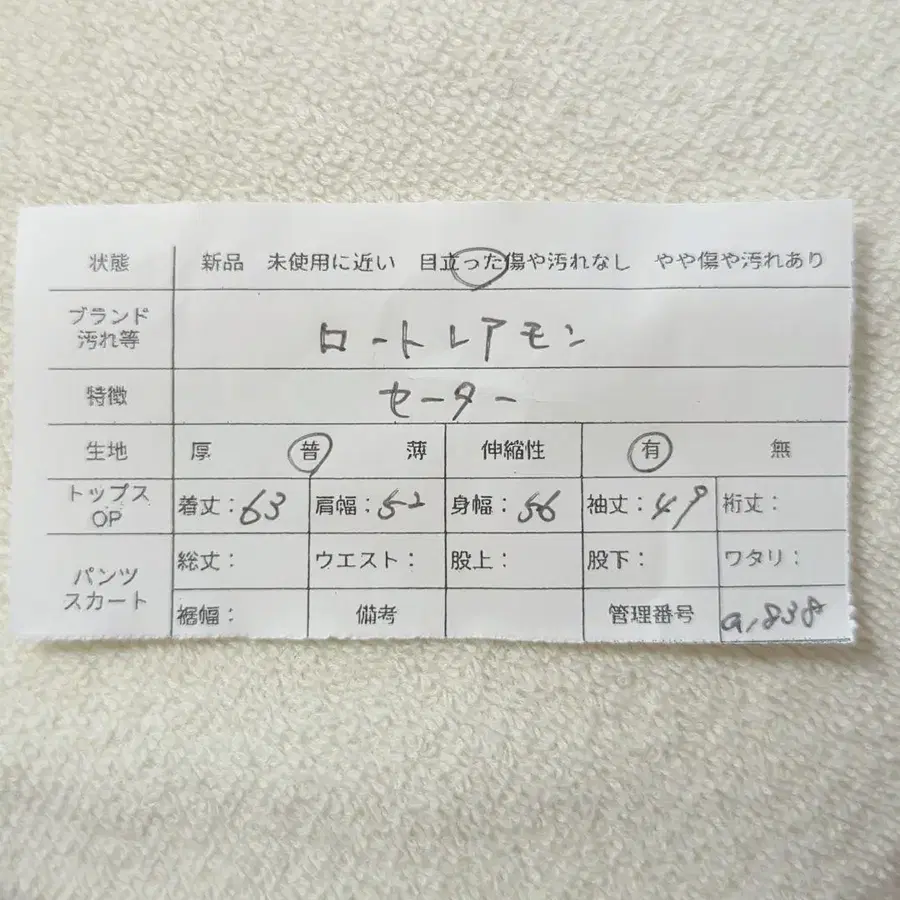 状態 新品 未使用に近い 目立った傷や汚れなし やや傷や汚れあり
ブランド
汚れ等 ロートレアモン
特徴 セーター
生地 厚 普 薄 伸縮性 有 無
トップス
OP 着丈：63 肩幅：52 身幅：56 袖丈：49 裄丈：
パンツ
スカート 総丈： ウエスト： 股上： 股下： ワタリ：
裾幅： 備考 管理番号 a,838